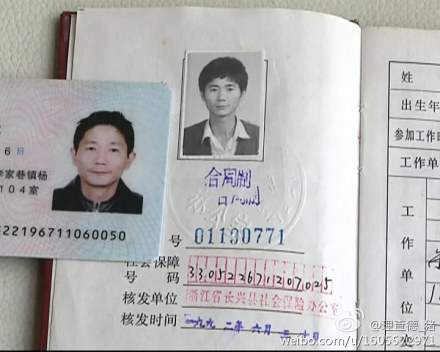 6日
李家巷镇杨
104室
522196711060050
合同制
号 01130771
社会保障
号码 330522671207025
核发单位 浙江省长兴县社会保险办公室
核发时间 一九九二年六月三十日
姓
出生年
参加工作日
工作单
工
作
@理直德_猪
weibo.com/u/1605529971